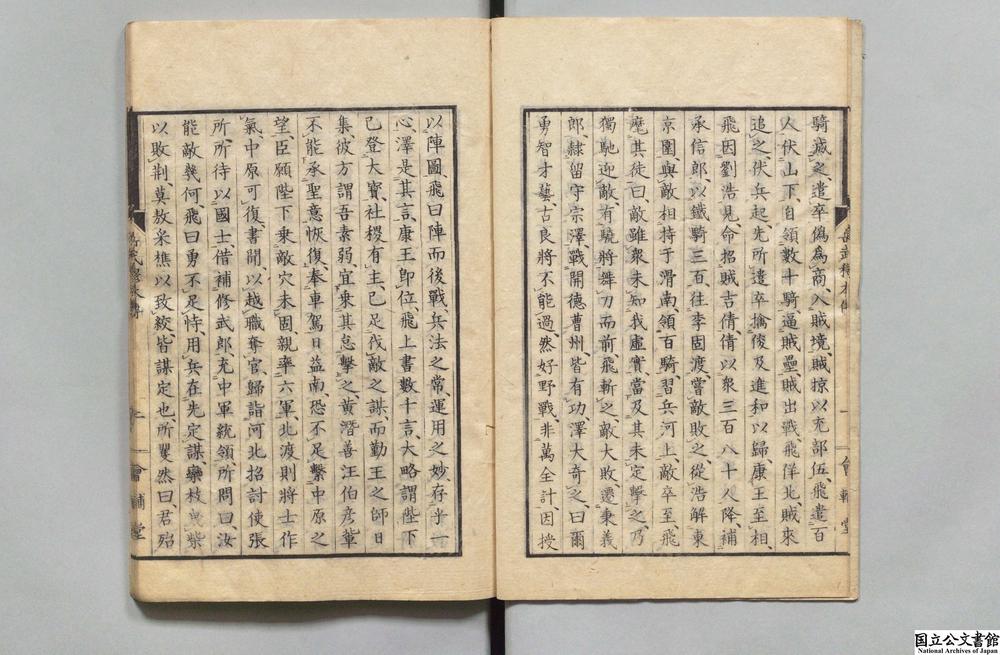 騎滅之、遣卒僞爲商、入賊境、賊掠以充部伍、飛遣百
人伏山下自領數十騎逼賊壘賊出戰、飛佯北、賊來
追之、伏兵起、先所遣卒擒俊及進和以歸、康王至相、
飛因劉浩見、命招賊吉倩倩以衆三百八十人降、補
承信郎、以鐵騎三百、往李固渡嘗敵敗之從浩解東
京圍、與敵相持于滑南、領百騎習兵河上、敵卒至、飛
麾其徒曰、敵雖衆未知我虛實當及其未定擊之、乃
獨馳迎敵、有驍將舞刀而前、飛斬之、敵大敗、遷秉義
郎、隸留守宗澤、戰開德曹州、皆有功、澤大奇之曰爾
勇智才藝、古良將不能過、然好野戰、非萬全計、因授
一 會輔堂
以陣圖、飛曰陣而後戰、兵法之常、運用之妙、存乎一
心、澤是其言、康王卽位、飛上書數千言、大略謂陛下
已登大寶、社稷有主、已足伐敵之謀、而勤王之師日
集、彼方謂吾素弱、宜乘其怠擊之、黃潛善汪伯彥輩
不能承聖意恢復、奉車駕日益南、恐不足繫中原之
望、臣願陛下乘敵穴未固、親率六軍、北渡則將士作
氣、中原可復、書聞以越職奪官歸詣河北招討使張
所、所待以國士、借補修武郎充中軍統領所問曰、汝
能敵幾何、飛曰勇不足恃、用兵在先定謀、欒枝曳柴
以敗荊、莫敖采樵以致絞、皆謀定也所矍然曰、君殆
會輔堂
国立公文書館
National Archives of Japan